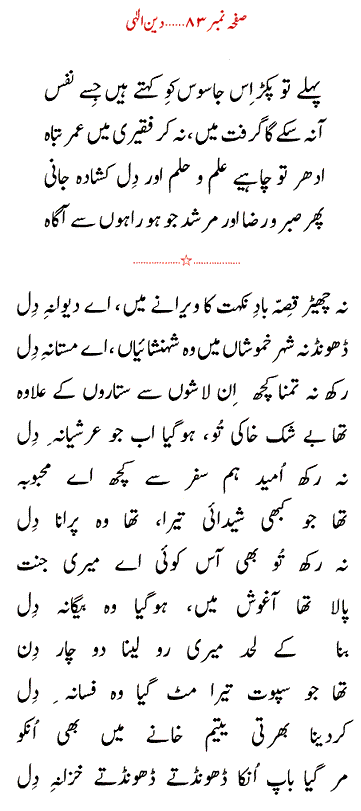 صفحہ نمبر ۸۳......دین الٰہی
پہلے تو پکڑ اِس جاسوس کو کہتے ہیں جِسے نفس
آنہ سکے گا گرفت میں، نہ کر فقیری میں عمر تباہ
ادھر تو چاہیے علم و حلم اور دِل کشادہ جانی
پھر صبر و رضا اور مرشد جو ہو راہوں سے آگاہ
................☆................
نہ چھیڑ قصِہّ بادِ نکہت کا ویرانے میں، اے دیوانہِ دِل
ڈھونڈنہ شہرِ خموشاں میں وہ شہنشائیاں، اے مستانہ دِل
رکھ نہ تمنا کچھ اِن لاشوں سے ستاروں کے علاوہ
تھا بے شک خاکی تُو، ہوگیا اب جو عرشیانہ ِ دِل
نہ رکھ اُمید ہم سفر سے کچھ اے محبوبہ
تھا جو کبھی شیدائی تیرا، تھا وہ پرانا دِل
نہ رکھ تُو بھی آس کوئی اے میری جنت
پالا تھا آغوش میں، ہوگیا وہ بیگانہ دِل
بنا کے لحد میری رو لینا دو چار دِن
تھا جو سپوت تیرا مٹ گیا وہ فسانہ ِ دِل
کردینا بھرتی یتیم خانے میں بھی اُنکو
مر گیا باپ اُنکا ڈھونڈتے ڈھونڈتے خزانہ دِل